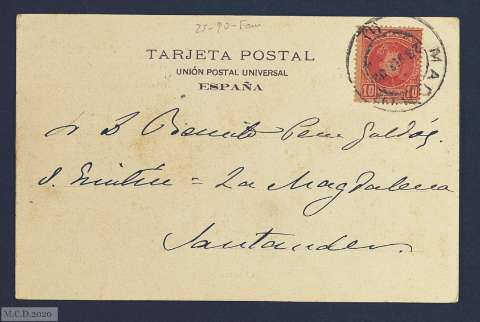 TARJETA POSTAL
UNIÓN POSTAL UNIVERSAL
ESPAÑA
10 10
MAD
D Benito Perez Galdós.
S. Quintín = La Magdalena
Santander.
M.C.D.2020